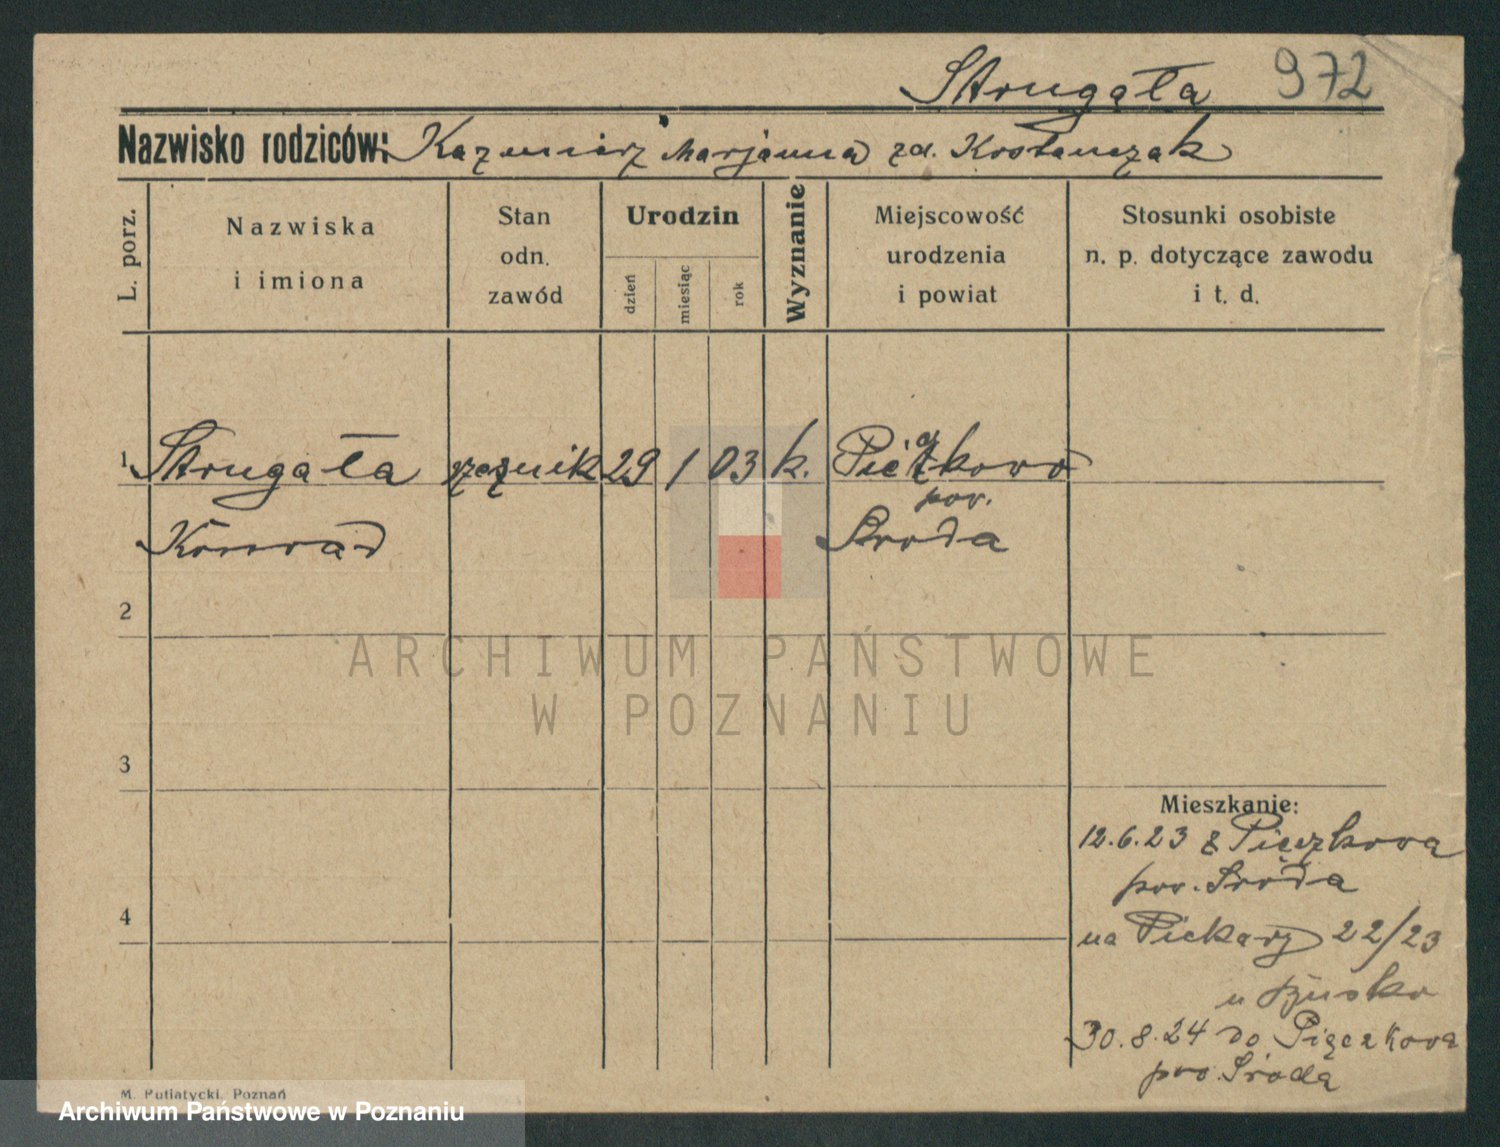 Strugała 972
Nazwisko rodziców: Kazimierz Marjanna zd. Kostańczak
L. porz.
Nazwiska
i imiona
Stan
odn.
zawód
Urodzin
dzień
miesiąc
rok
Wyznanie
Miejscowość
urodzenia
i powiat
Stosunki osobiste
n. p. dotyczące zawodu
i t. d.
1 Strugała rzeźnik 29 1 03 k. Piączkowo
pow.
Konrad Środa
2
ARCHIWUM PAŃSTWOWE
W POZNANIU
3
Mieszkanie:
12.6.23 z Pięczkowa
pow. Środa
na Piekary 22/23
u
4
30.8.24 do Pięczkowa
pow. Środa
M. Putiatycki, Poznań
Archiwum Państwowe w Poznaniu